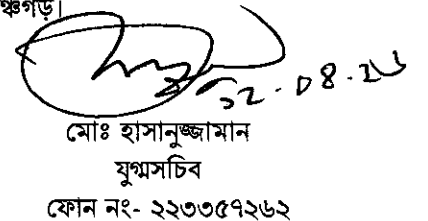 ঞ্চগড়।
মোঃ হাসানুজ্জামান
যুগ্মসচিব
ফোন নং- ২২৩৩৫৭২৬২